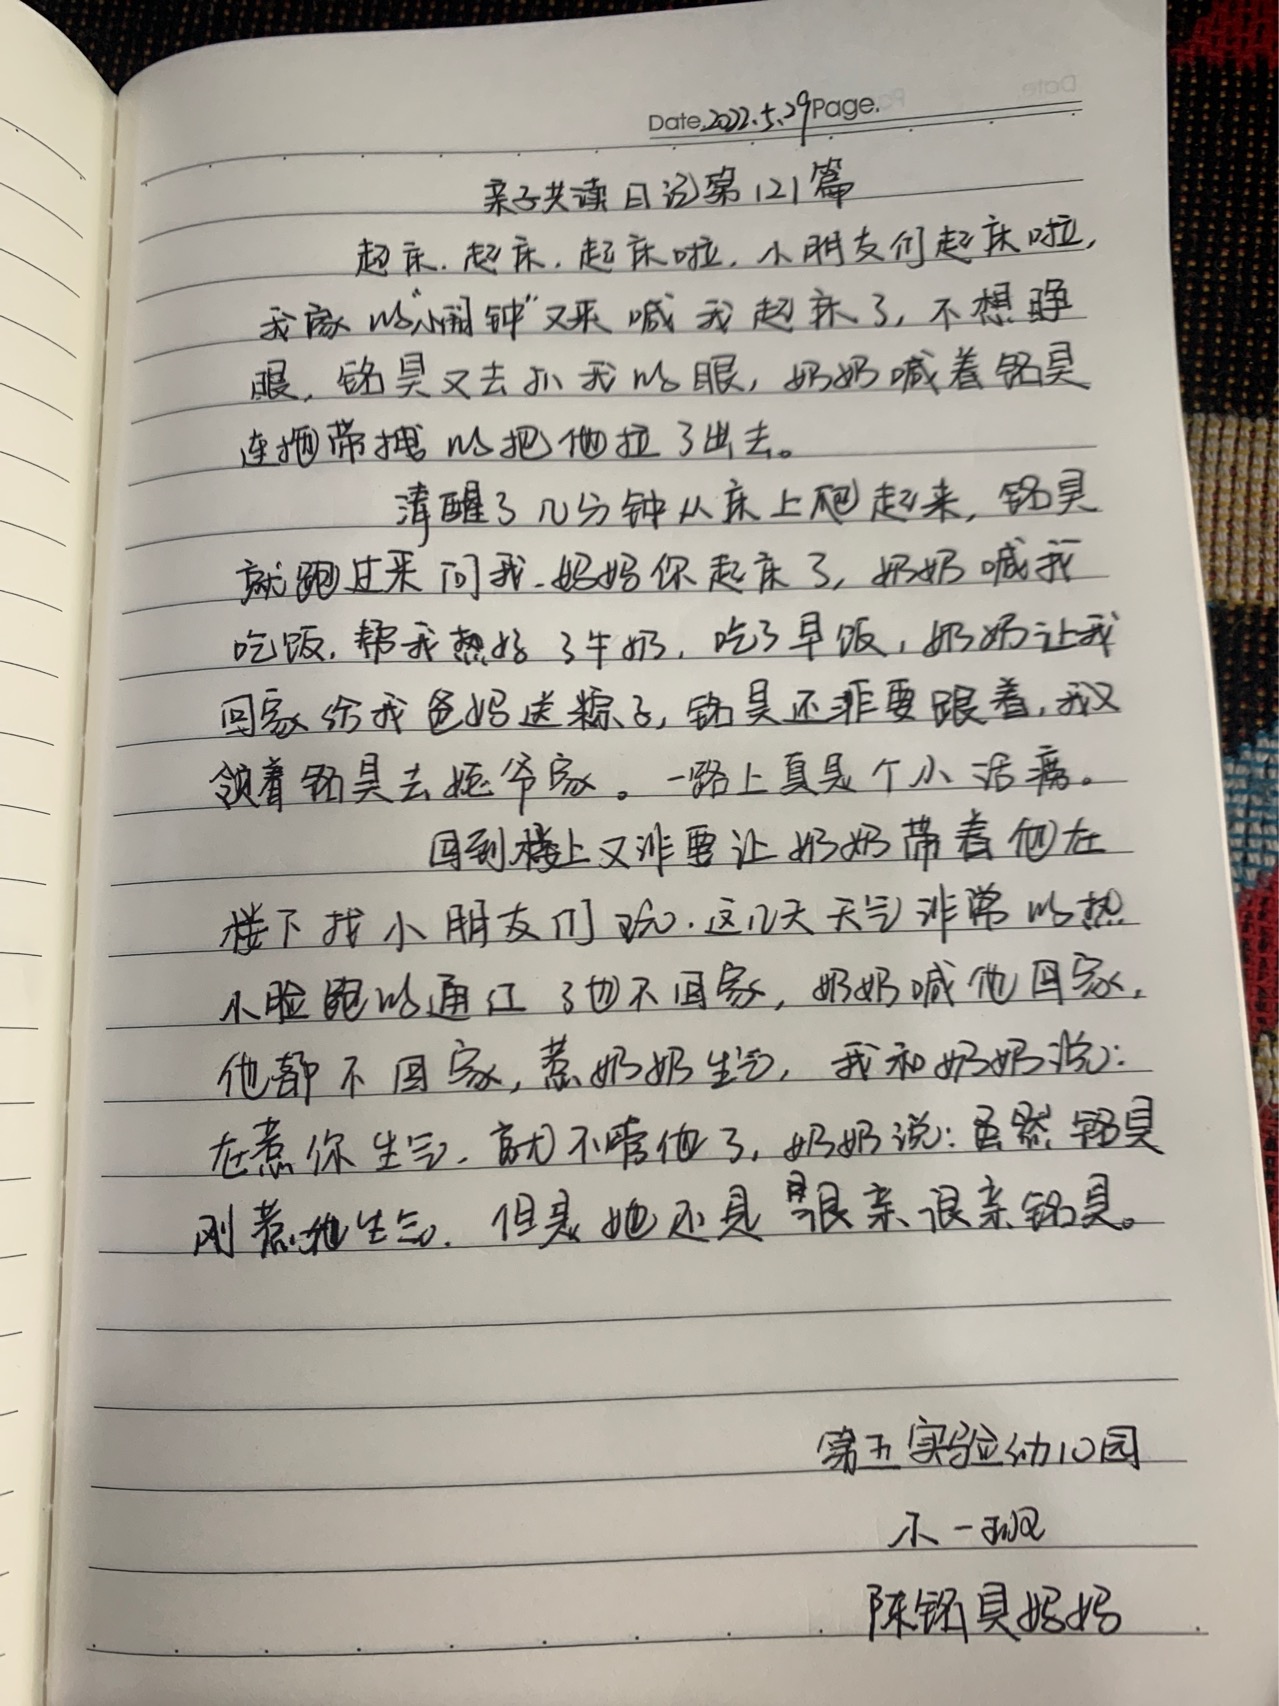 Date.2022.5.29Page.
亲子共读日记第121篇
起床.起床.起床啦.小朋友们起床啦,
我家的"小闹钟"又来喊我起床了,不想睁
眼,铭昊又去扒我的眼,奶奶喊着铭昊
连拖带拽的把他拉了出去。
清醒了几分钟从床上爬起来,铭昊
就跑过来问我.妈妈你起床了,奶奶喊我
吃饭.帮我热好了牛奶.吃了早饭,奶奶让我
回家给我爸妈送粽子,铭昊还非要跟着.我又
领着铭昊去姥爷家。一路上真是个小话痨。
回到楼上又非要让奶奶带着他在
楼下找小朋友们玩.这几天天气非常的热
小脸跑的通红了也不回家,奶奶喊他回家,
他都不回家,惹奶奶生气,我和奶奶说:
在惹你生气.就不管他了,奶奶说:虽然铭昊
刚惹她生气.但是她还是很亲很亲铭昊。
第五实验幼儿园
小一班
陈铭昊妈妈